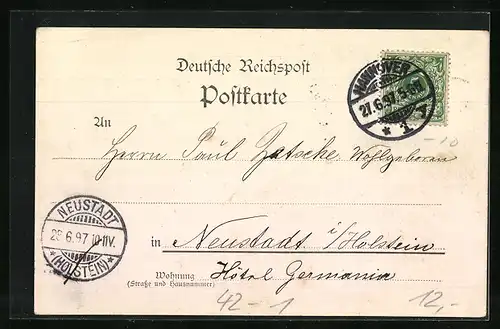 Deutsche Reichspost
Postkarte
HANNOVER
27.6.97.
* 1. *
An
Herrn Paul Zatsche, Wohlgeboren
-10
NEUSTADT
28.6.97.10-11V.
*(HOLSTEIN)*
in Neustadt i/Holstein
Wohnung Hôtel Germania
(Straße und Hausnummer)
42-1
12,-